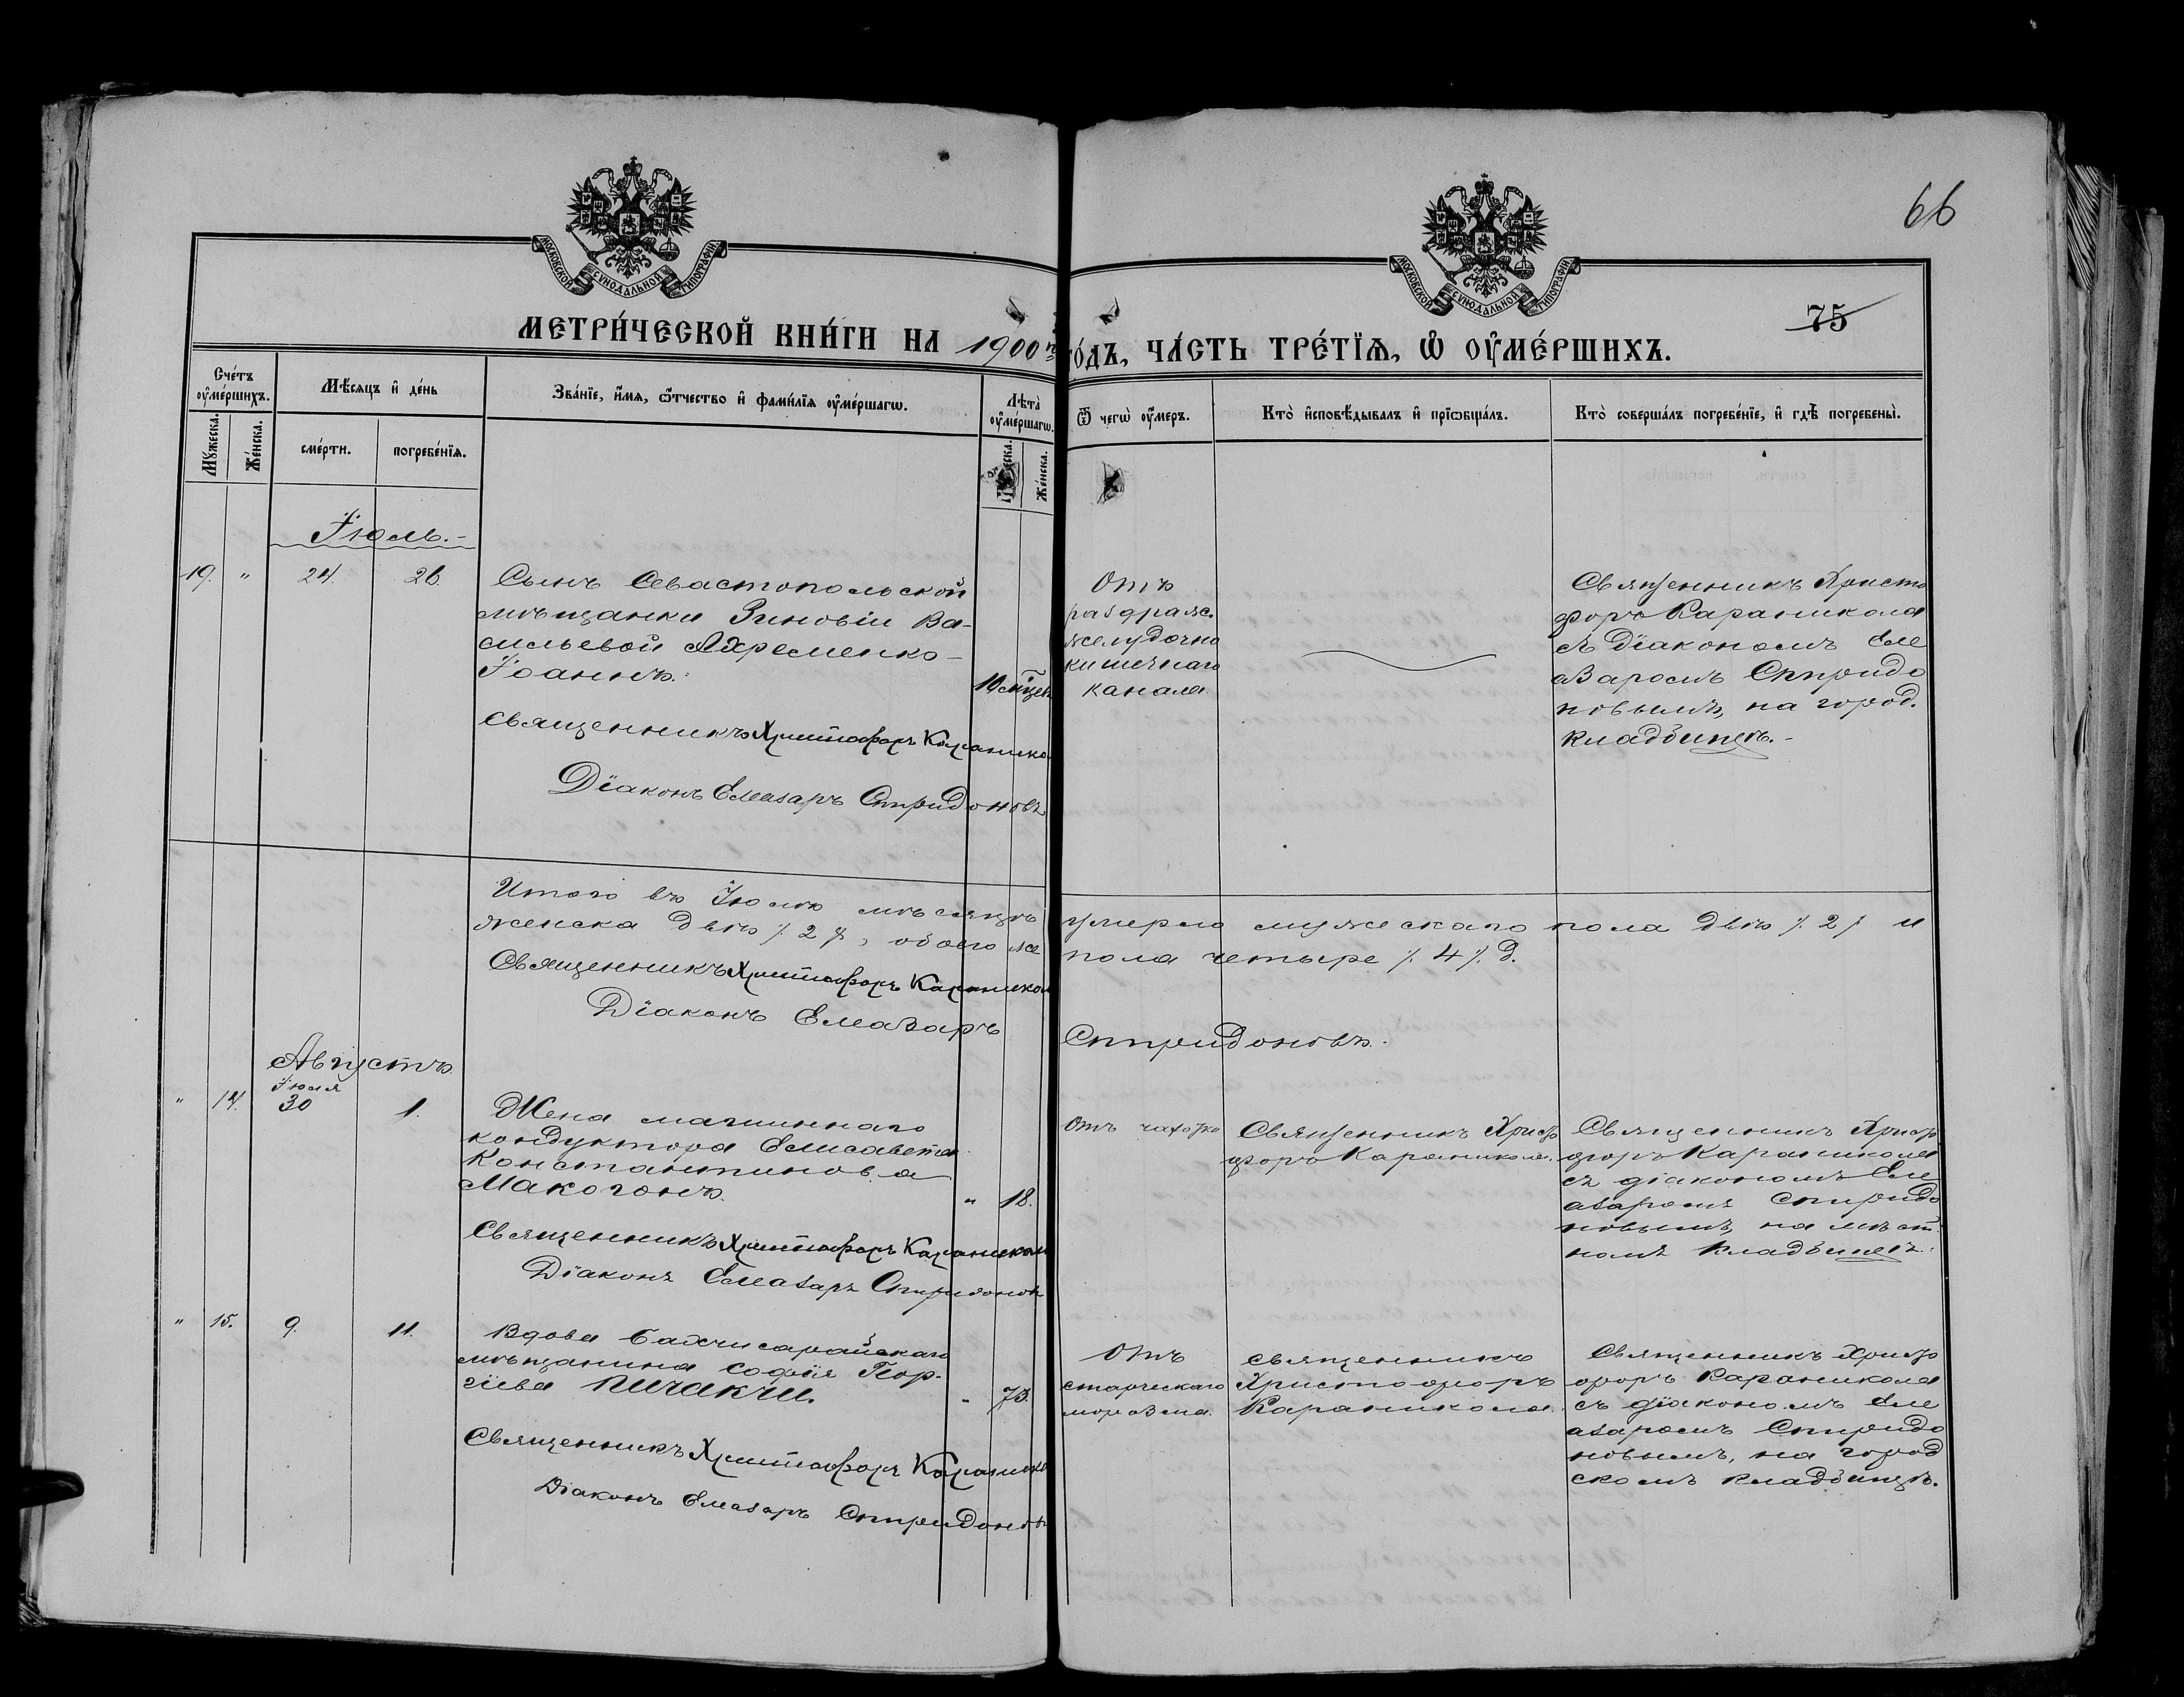 66
МОСКОВСКОЙ СУНОДАЛЬНОЙ ТИПОГРАФІИ
МОСКОВСКОЙ СУНОДАЛЬНОЙ ТИПОГРАФІИ
75
МЕТРИ́ЧЕСКОЙ КНИ́ГИ НА 1900й
ГО́ДЪ, ЧА́СТЬ ТРЕ́ТЇѦ, Ѡ҆ ОУ҆МЕ́РШИХЪ.
Сче́тъ оу҆ме́ршихъ.
Мꙋ́жеска.
Же́нска.
Мѣ́сѧцъ и҆ де́нь
сме́рти.
погребе́нїѧ.
Зва́нїе, и҆́мѧ, ѻ҆́тчество и҆ фами́лїѧ оу҆ме́ршагѡ.
Лѣ̀та оу҆ме́ршагѡ.
Мꙋ́жеска.
Же́нска.
Ѿ чегѡ̀ оу҆́меръ.
Кто̀ и҆сповѣ́дывалъ и҆ прїѡбща́лъ.
Кто̀ соверша́лъ погребе́нїе, и҆ гдѣ̀ погребены̀.
Іюль.-
19. " 24. 26.
Сынъ Севастопольской
мѣщанки Зиновіи Ва-
сильевой Ахременко -
Іоаннъ.
10 мѣцев
Священникъ Христофоръ Караникола
Діаконъ Елеазаръ Спиридоновъ
Отъ
раздраж.
желудочно
кишечнаго
канала
Священникъ Христо
форъ Караникола
съ Діакономъ Еле
азаромъ Спиридо
новымъ, на город.
кладбищѣ.-
Итого въ Іюлѣ мѣсяцѣ умерло мужескаго пола двѣ /.2/ и
женска двѣ /.2/, обоего же пола четыре /.4/. д.
Священникъ Христофоръ Караникола
Діаконъ Елеазаръ Спиридоновъ.
Августъ.
" 14. Іюля 30 1.
Жена машиннаго
кондуктора Елисавета
Константинова
Макогонъ.
" 18.
Священникъ Христофоръ Караникола
Діаконъ Елеазаръ Спиридоновъ
Отъ чахотки
Священникъ Христо
форъ Караникола.
Священникъ Христо
форъ Караникола
съ діакономъ Еле
азаромъ Спиридо
новымъ, на мѣст
номъ кладбищѣ.
" 15. 9. 11.
Вдова Бахчисарайскаго
мѣщанина Софія Геор-
гіева Пичакчи.
" 75.
Священникъ Христофоръ Караникола
Діаконъ Елеазаръ Спиридоновъ
Отъ
старческаго
моразма.
Священникъ
Христофоръ
Караникола.
Священникъ Христо
форъ Караникола
съ діакономъ Еле
азаромъ Спиридо
новымъ, на город
скомъ кладбищѣ.